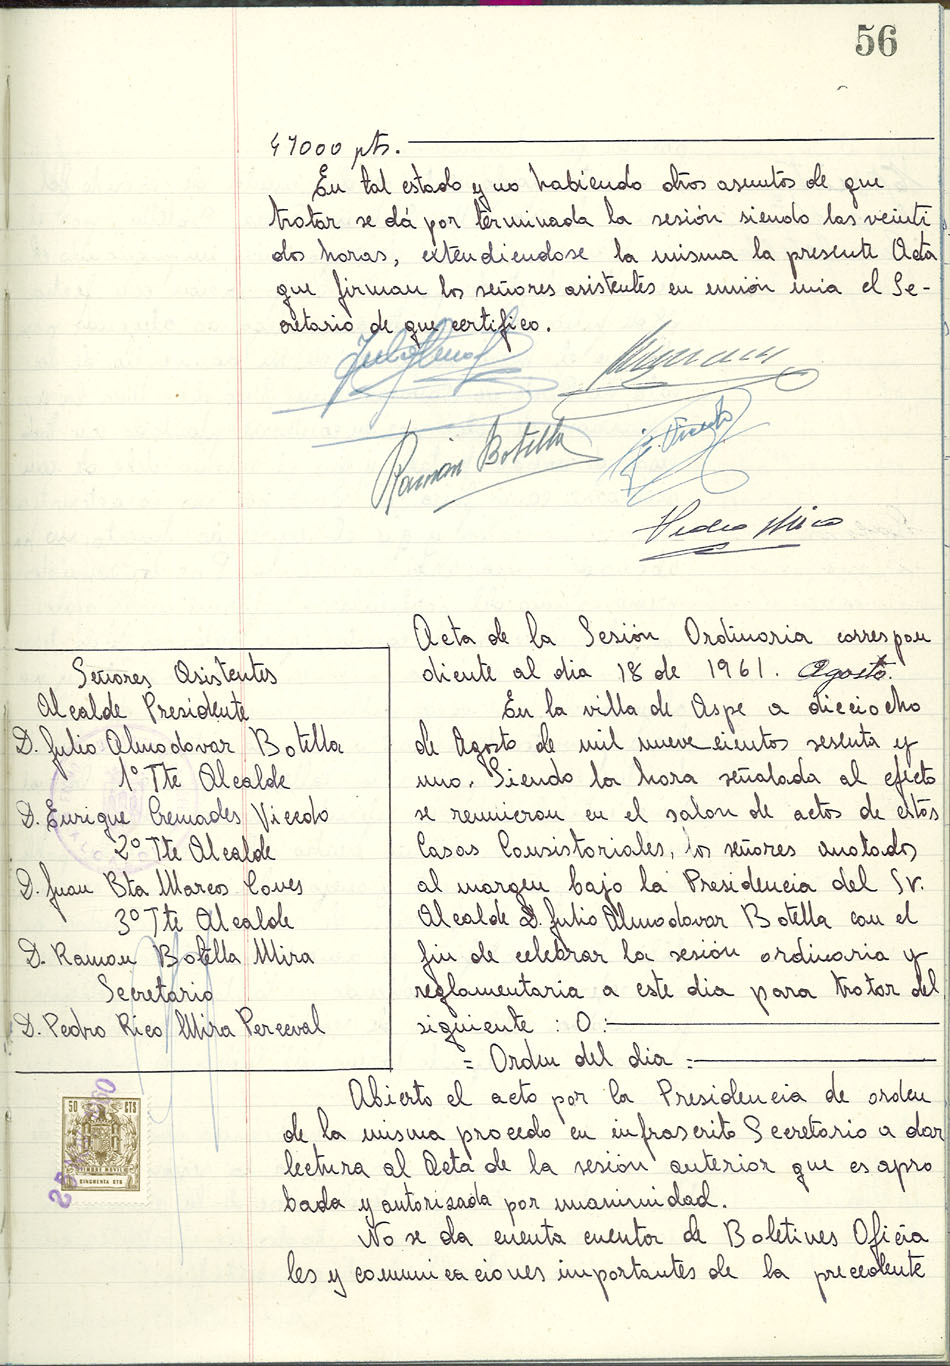 56
47000 pts.
En tal estado y no habiendo otros asuntos de que
tratar se dá por terminada la sesión siendo las veinti
dos horas, extendiendose la misma la presente Acta
que firman los señores asistentes en unión mia el Se-
cretario de que certifico.
Ramón Botella
E. Vicedo
Pedro Mira
Señores Asistentes
Alcalde Presidente
D. Julio Almodovar Botella
1º Tte Alcalde
D. Enrique Cremades Vicedo
2º Tte Alcalde
D. Juan Bta Marcos Coves
3º Tte Alcalde
D. Ramon Botella Mira
Secretario
D. Pedro Rico Mira Perceval
Acta de la Sesión Ordinaria correspon
diente al dia 18 de 1961. Agosto.
En la villa de Aspe a dieciocho
de Agosto de mil nueve cientos sesenta y
uno. Siendo la hora señalada al efecto
se reunieron en el salon de actos de estos
Casas Consistoriales, los señores anotados
al margen bajo la Presidencia del Sr.
Alcalde D. Julio Almodovar Botella con el
fin de celebrar la sesión ordinaria y
reglamentaria a este dia para tratar del
siguiente : O :
= Orden del dia =
Abierto el acto por la Presidencia de orden
de la misma procedo en infrascrito Secretario a dar
lectura al Acta de la sesión anterior que es apro
bada y autorizada por unanimidad.
No se da cuenta cuentor de Boletines Oficia
les y comunicaciones importantes de la precedente
50 CTS
TIMBRE MOVIL
CINCUENTA CTS